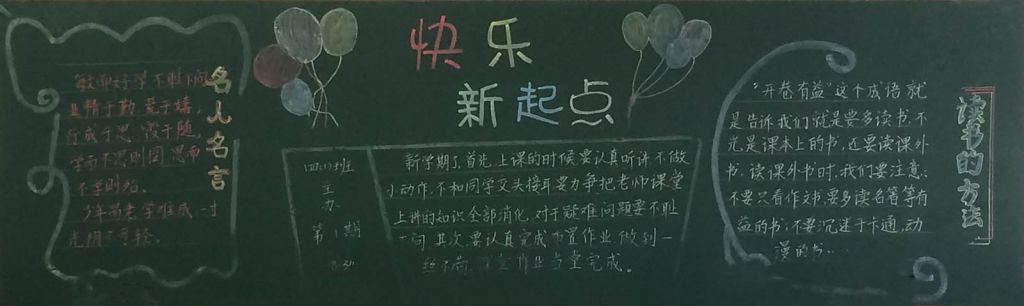 快乐
新起点
名人名言
敏而好学不耻下问
业精于勤荒于嬉；
行成于思毁于随，
学而不思则罔思而
不学则殆。
少年易老学难成一寸
光阴不可轻。
四(1)班
主
办
第1期
新学期了首先上课的时候要认真听讲不做
小动作，不和同学交头接耳要力争把老师课堂
上讲的知识全部消化，对于疑难问题要不耻
下问，其次，要认真完成布置作业，做到一
丝不苟，作业当堂完成。
读书的方法
"开卷有益"这个成语就
是告诉我们就是要多读书，不
光是课本上的书，还要读课外
书。读课外书时，我们要注意：
不要只看作文书，要多读名著等有
益的书；不要沉迷于卡通、动
漫的书…